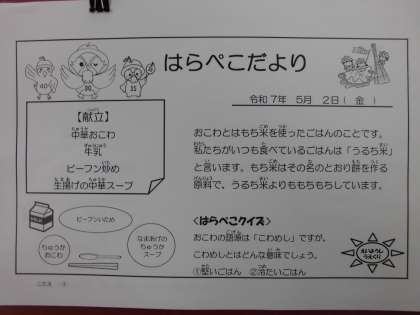 はらぺこだより
令和7年 5月 2日( 金 )
【献立】
中華おこわ
牛乳
ビーフン炒め
生揚げの中華スープ
おこわとはもち米を使ったごはんのことです。
私たちがいつも食べているごはんは「うるち米」
と言います。もち米はその名のとおり餅を作る
原料で、うるち米よりももちもちしています。
ビーフンいため
ちゅうか
おこわ
なまあげの
ちゅうか
スープ
<はらぺこクイズ>
おこわの語源は「こわめし」ですが、
こわめしとはどんな意味でしょう。
①堅いごはん ②冷たいごはん